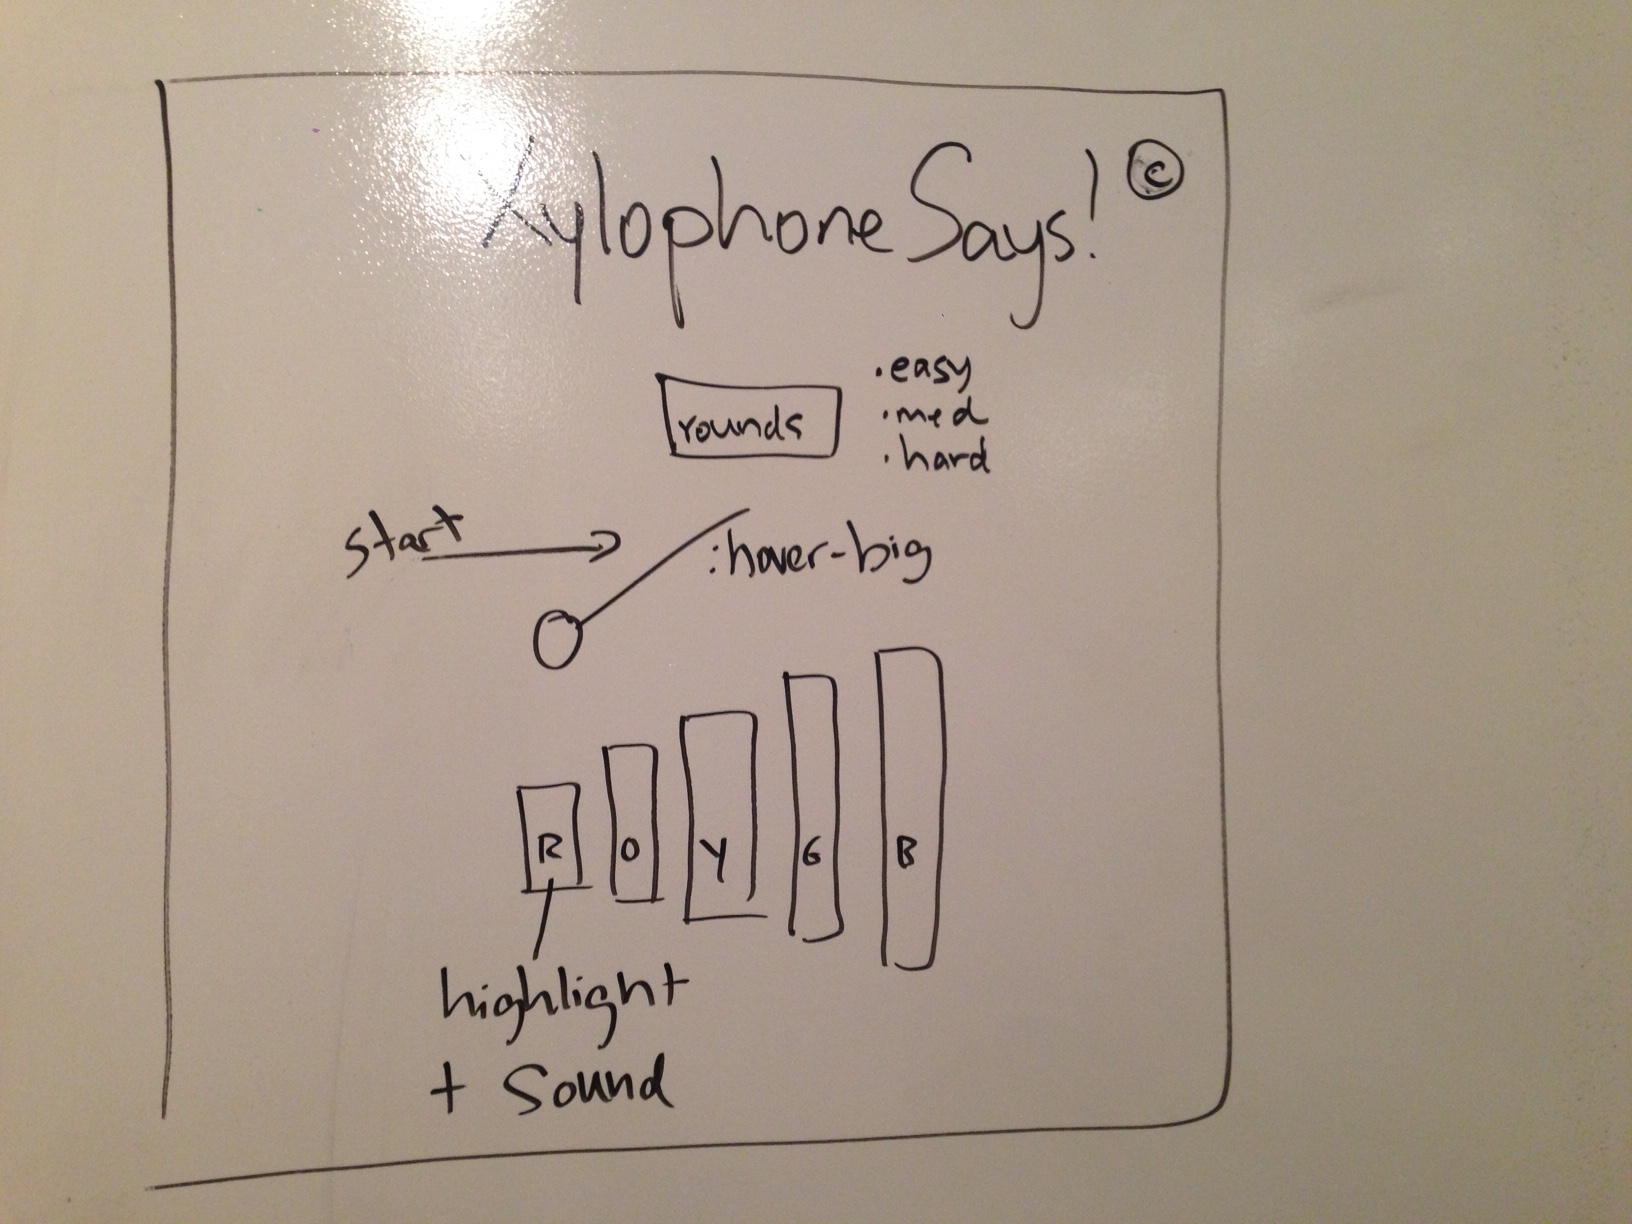 Xylophone Says! ©
rounds
.easy
.med
.hard
start
:hover-big
R O Y G B
highlight
+ Sound